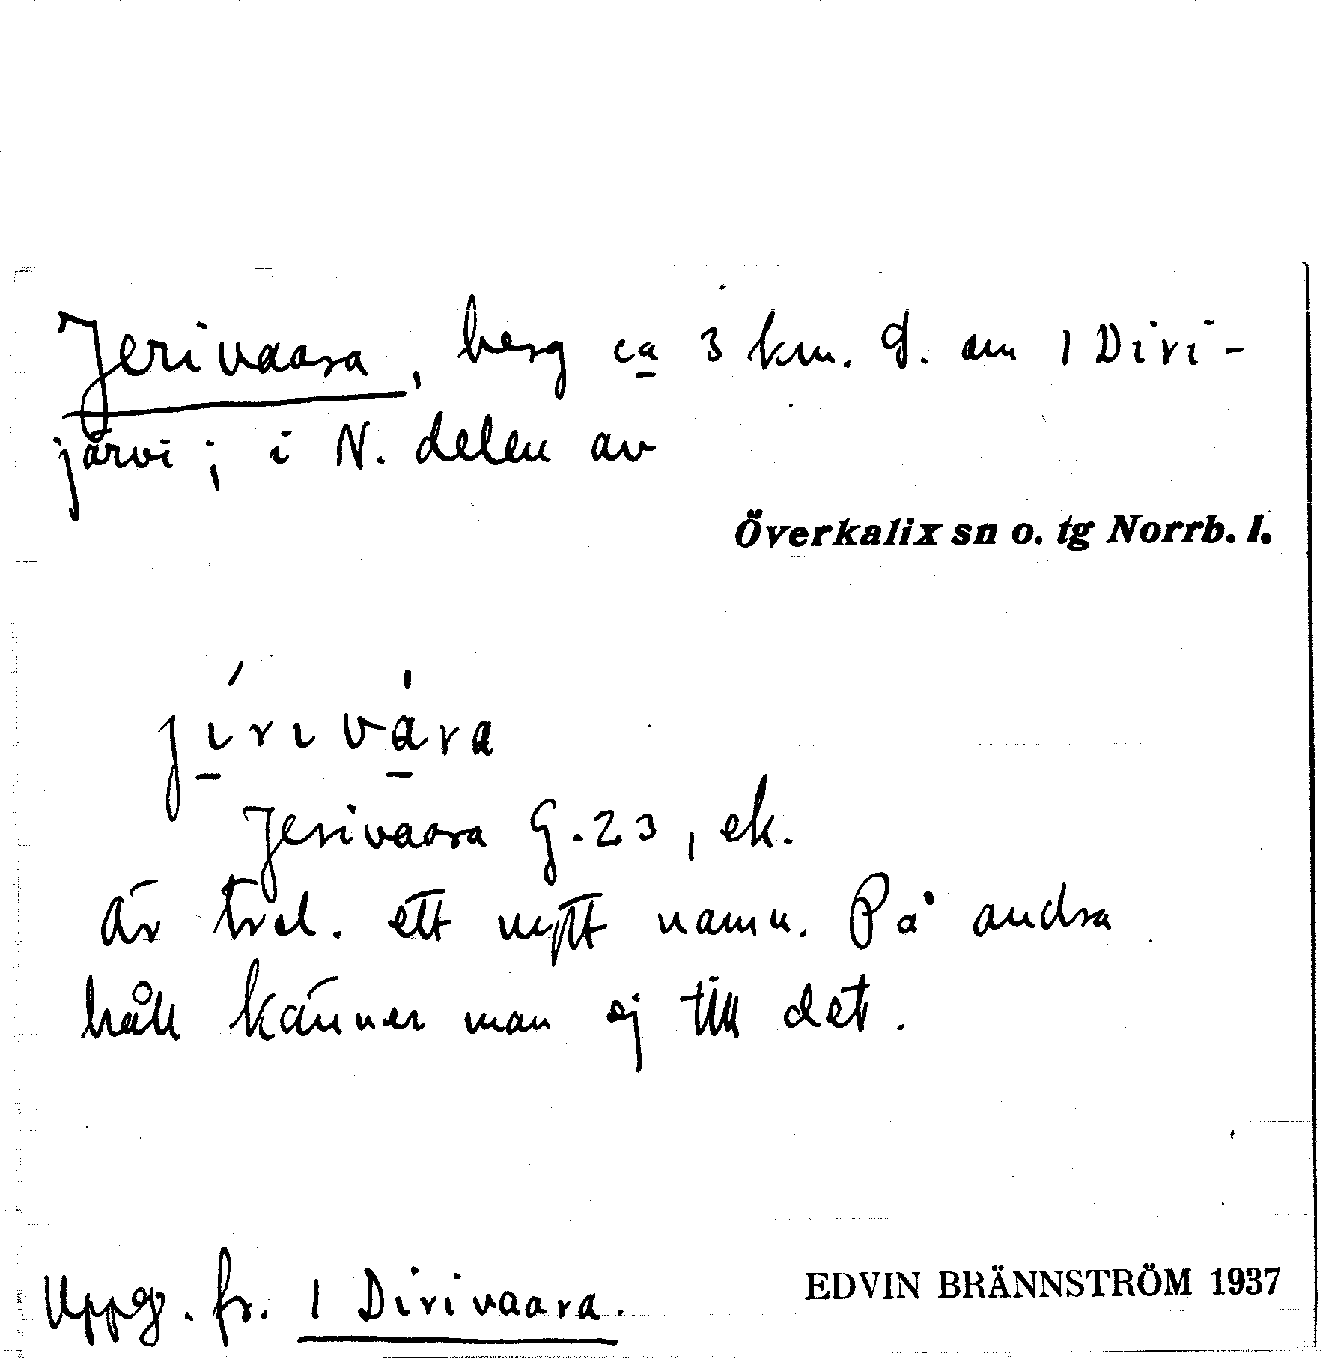 Jerivaara, berg ca 3 km. O. om 1 Diri-
järvi; i N. delen av
Överkalix sn o. tg Norrb. l.
jírivára
Jerivaara G. 23, ek.
Är trol. ett nytt namn. På andra
håll känner man ej till det.
Uppg. fr. 1 Dirivaara.
EDVIN BRÄNNSTRÖM 1937